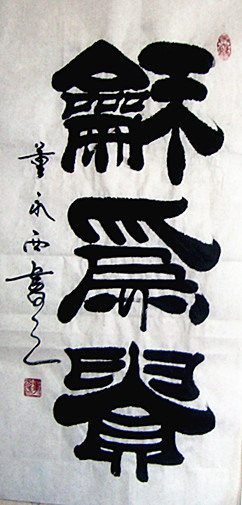 龢為貴
董永西書之